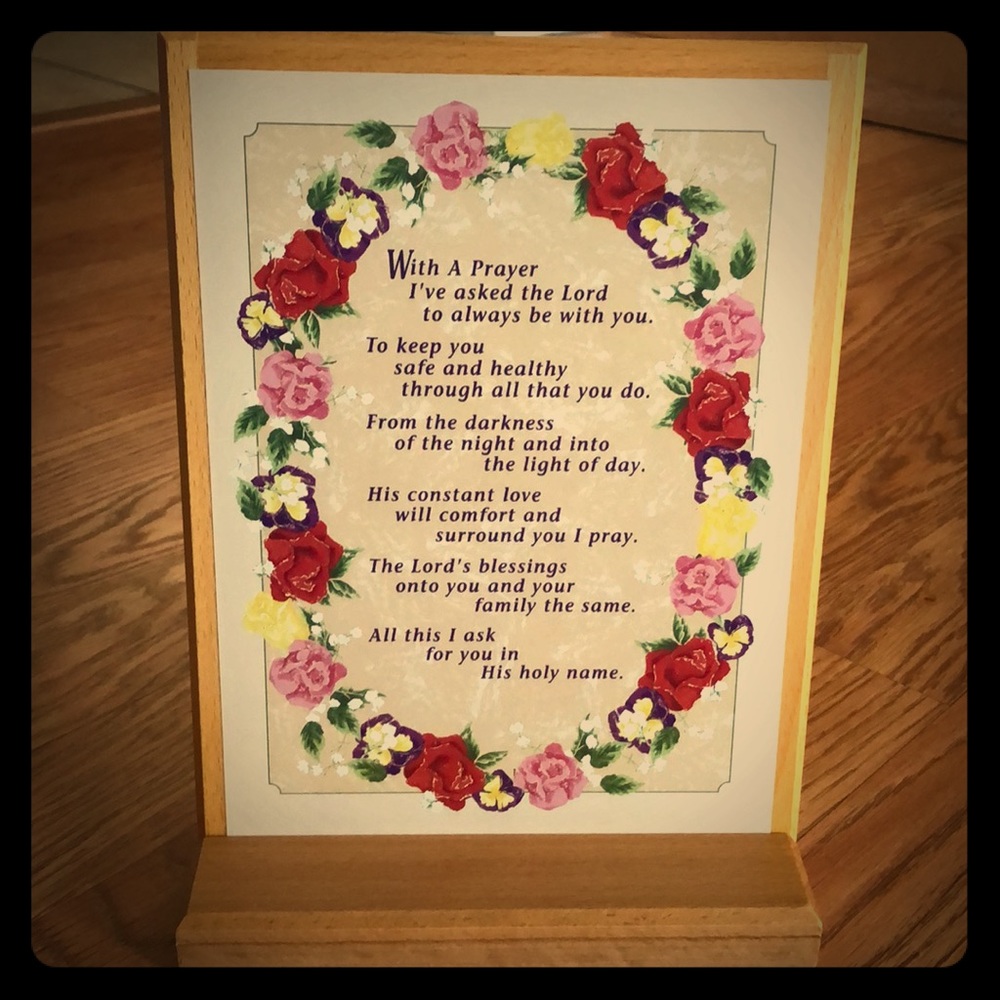 With A Prayer
I've asked the Lord
to always be with you.
To keep you
safe and healthy
through all that you do.
From the darkness
of the night and into
the light of day.
His constant love
will comfort and
surround you I pray.
The Lord's blessings
onto you and your
family the same.
All this I ask
for you in
His holy name.